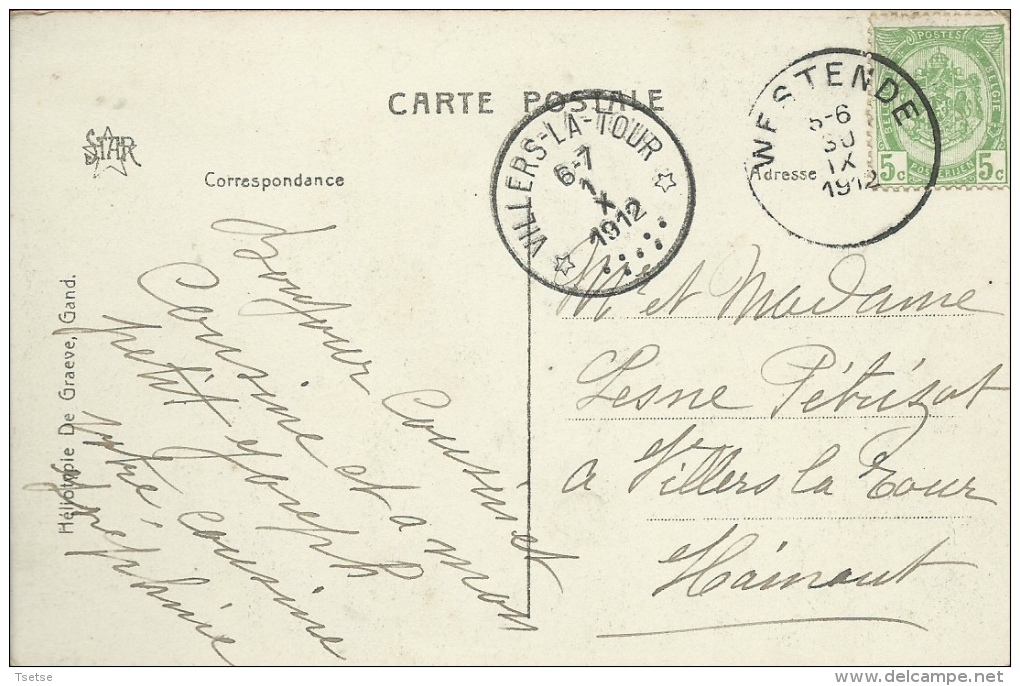 CARTE POSTALE
STAR
Correspondance
Adresse
Héliotypie De Graeve, Gand.
VILLERS-LA-TOUR
6-7
1
X
1912
WESTENDE
5-6
30
IX
1912
POSTES
BELGIE
5c 5c
Bonjour Cousin et
Cousine et a mon
petit Joseph
votre cousine
Josephine
Mr et Madame
Lesne Pétrisot
a Villers la Tour
Hainaut
Tsetse
delcampe.net